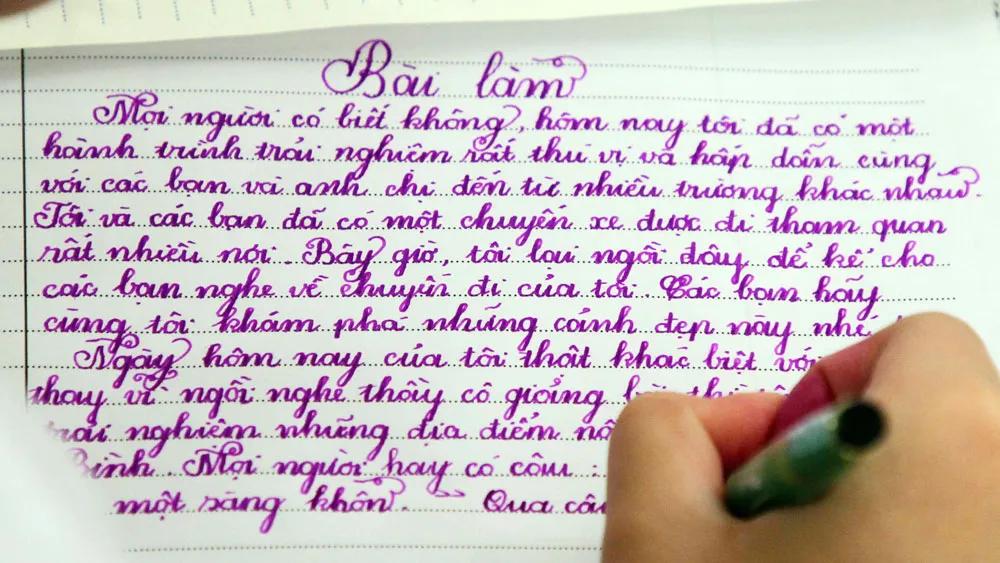 Bài làm
Mọi người có biết không, hôm nay tôi đã có một
hành trình trải nghiệm rất thú vị và hấp dẫn cùng
với các bạn và anh chị đến từ nhiều trường khác nhau.
Tôi và các bạn đã có một chuyến xe được đi tham quan
rất nhiều nơi. Bây giờ, tôi lại ngồi đây để kể cho
các bạn nghe về chuyến đi của tôi. Các bạn hãy
cùng tôi khám phá những cảnh đẹp này nhé
Ngày hôm nay của tôi thật khác biệt với
thay vì ngồi nghe thầy cô giảng
trải nghiệm những địa điểm
Bình. Mọi người hay có câu:
một sàng khôn. Qua câu